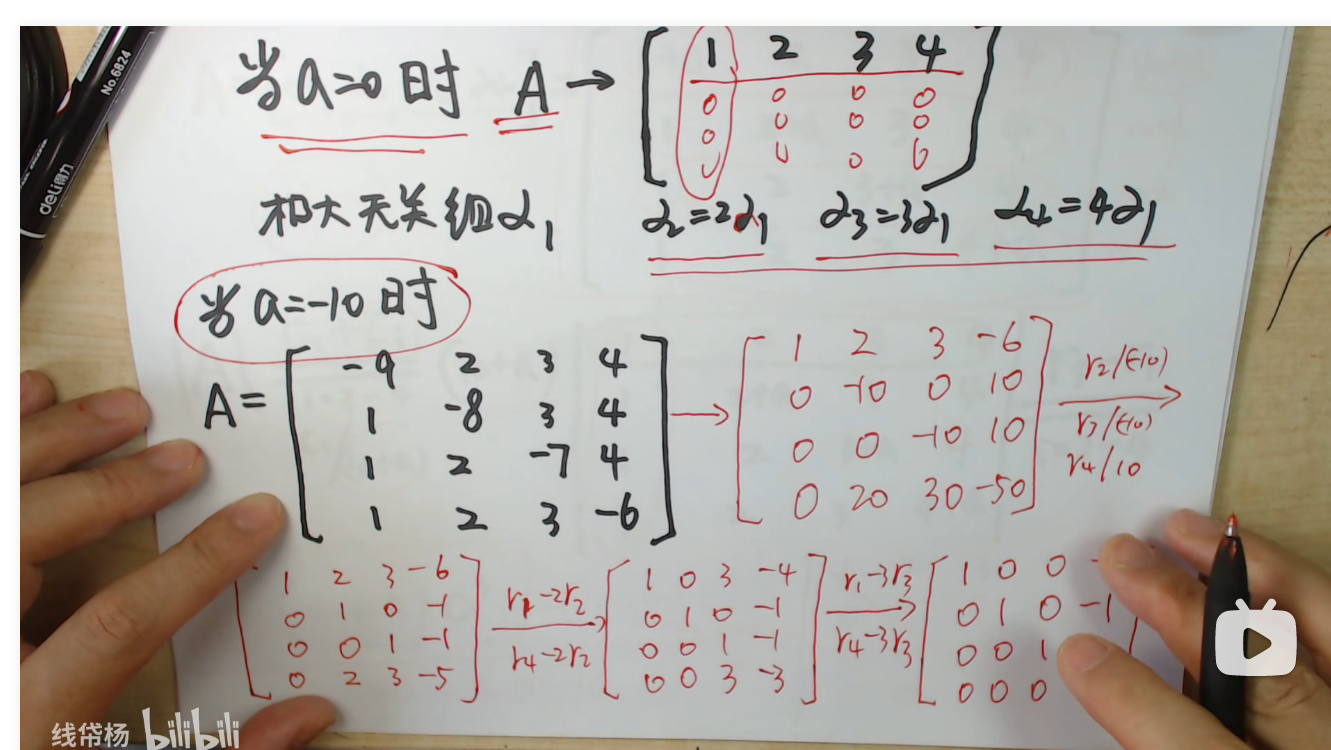 No.6824
deli得力
当a=0时 A → [1 2 3 4
0 0 0 0
0 0 0 0
0 0 0 0]
极大无关组α1 α2=2α1 α3=3α1 α4=4α1
当a=-10时
A= [-9 2 3 4
1 -8 3 4
1 2 -7 4
1 2 3 -6]
→ [1 2 3 -6
0 -10 0 10
0 0 -10 10
0 20 30 -50]
r2/(-10)
→
r3/(-10)
r4/10
[1 2 3 -6
0 1 0 -1
0 0 1 -1
0 2 3 -5]
r1-2r2
→
r4-2r2
[1 0 3 -4
0 1 0 -1
0 0 1 -1
0 0 3 -3]
r1-3r3
→
r4-3r3
[1 0 0 -
0 1 0 -1
0 0 1
0 0 0
线帒杨 bilibili